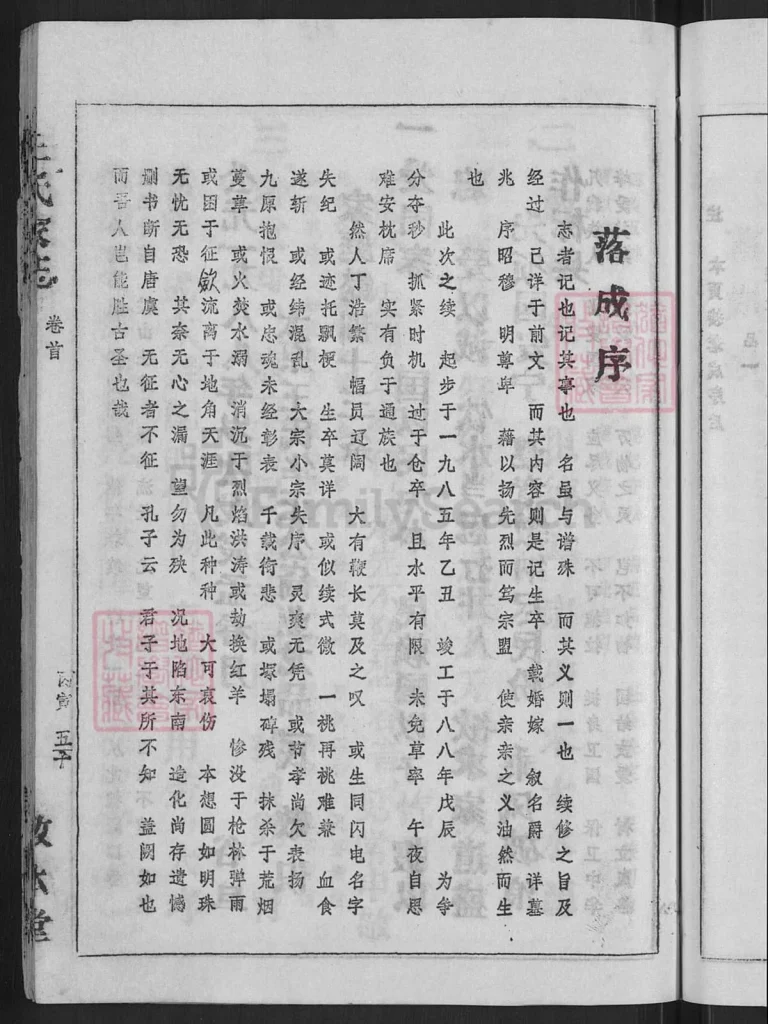 落成序
志者记也记其事也　名虽与谱殊　而其义则一也　续修之旨及
经过　已详于前文　而其内容则是记生卒　载婚嫁　叙名爵　详墓
兆　序昭穆　明尊卑　藉以扬先烈而笃宗盟　使亲亲之义油然而生
也
此次之续　起步于一九八五年乙丑　竣工于八八年戊辰　为争
分夺秒　抓紧时机　过于仓卒　且水平有限　未免草率　午夜自思
难安枕席　实有负于通族也
然人丁浩繁　幅员辽阔　大有鞭长莫及之叹　或生同闪电名字
失纪　或迹托飘梗　生卒莫详　或似续式微　一祧再祧难兼　血食
遂斩　或经纬混乱　大宗小宗失序　灵爽无凭　或节孝尚欠表扬
九原抱恨　或忠魂未经彰表　千载衔悲　或塚塌碑残　抹杀于荒烟
蔓草　或火焚水溺　消沉于烈焰洪涛或劫换红羊　惨没于枪林弹雨
或困于征敛流离于地角天涯　凡此种种　大可哀伤　本想圆如明珠
无忧无恐　其奈无心之漏　望勿为殃　况地陷东南　造化尚存遗憾
删书断自唐虞　无征者不征　孔子云　君子于其所不知　盖阙如也
而吾人岂能胜古圣也哉
氏家志
卷首
丙寅　五子
堂
FamilySearch